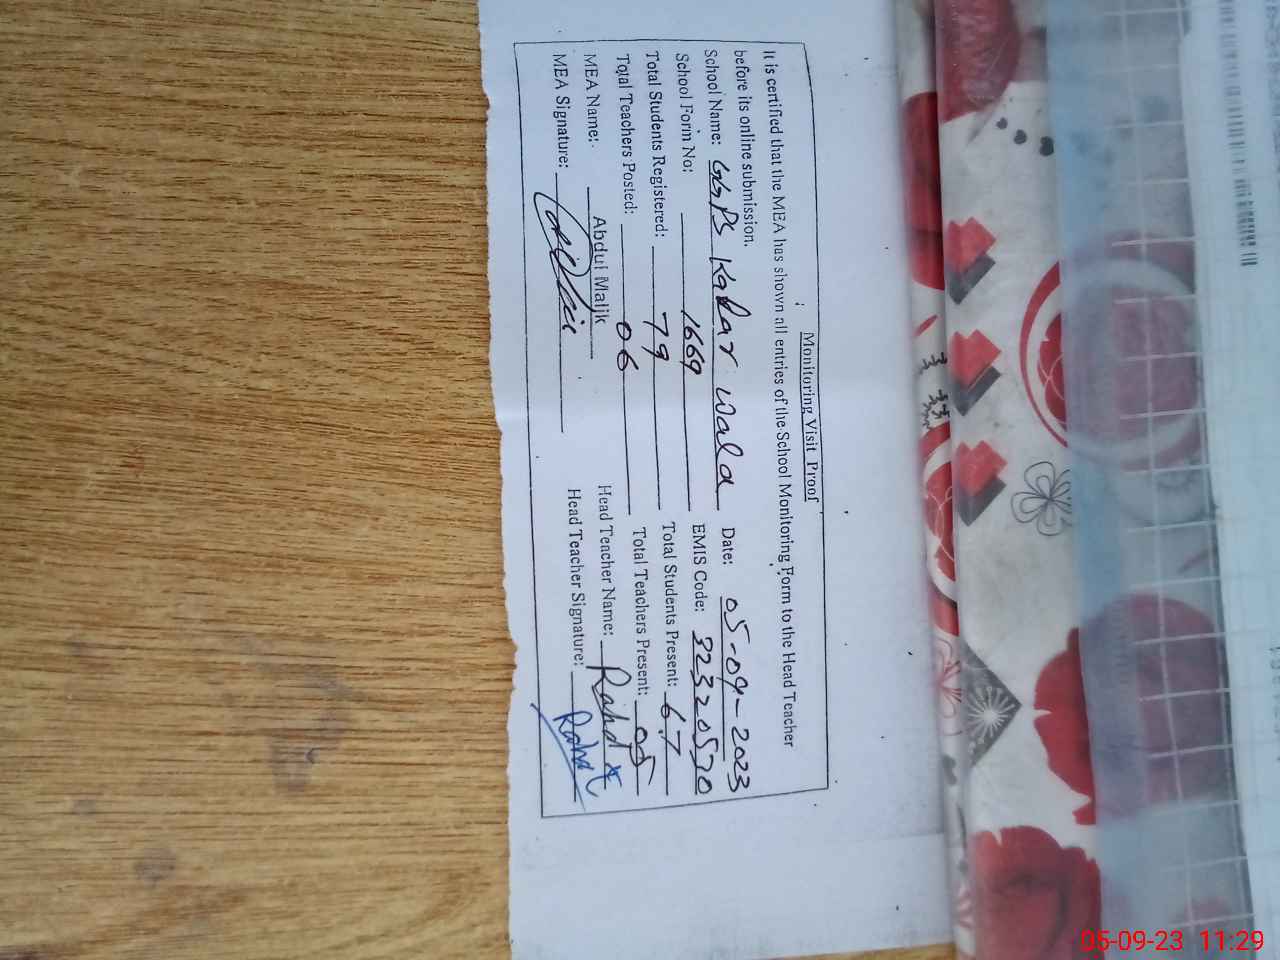 Monitoring Visit Proof
It is certified that the MEA has shown all entries of the School Monitoring Form to the Head Teacher
before its online submission.
School Name: GGPS Kahar wala Date: 05-09-2023
School Form No: 1669 EMIS Code: 32320570
Total Students Registered: 79 Total Students Present: 67
Total Teachers Posted: 06 Total Teachers Present: 05
MEA Name: Abdul Malik Head Teacher Name: Rahat
MEA Signature: Head Teacher Signature: Rahat
05-09-23 11:29